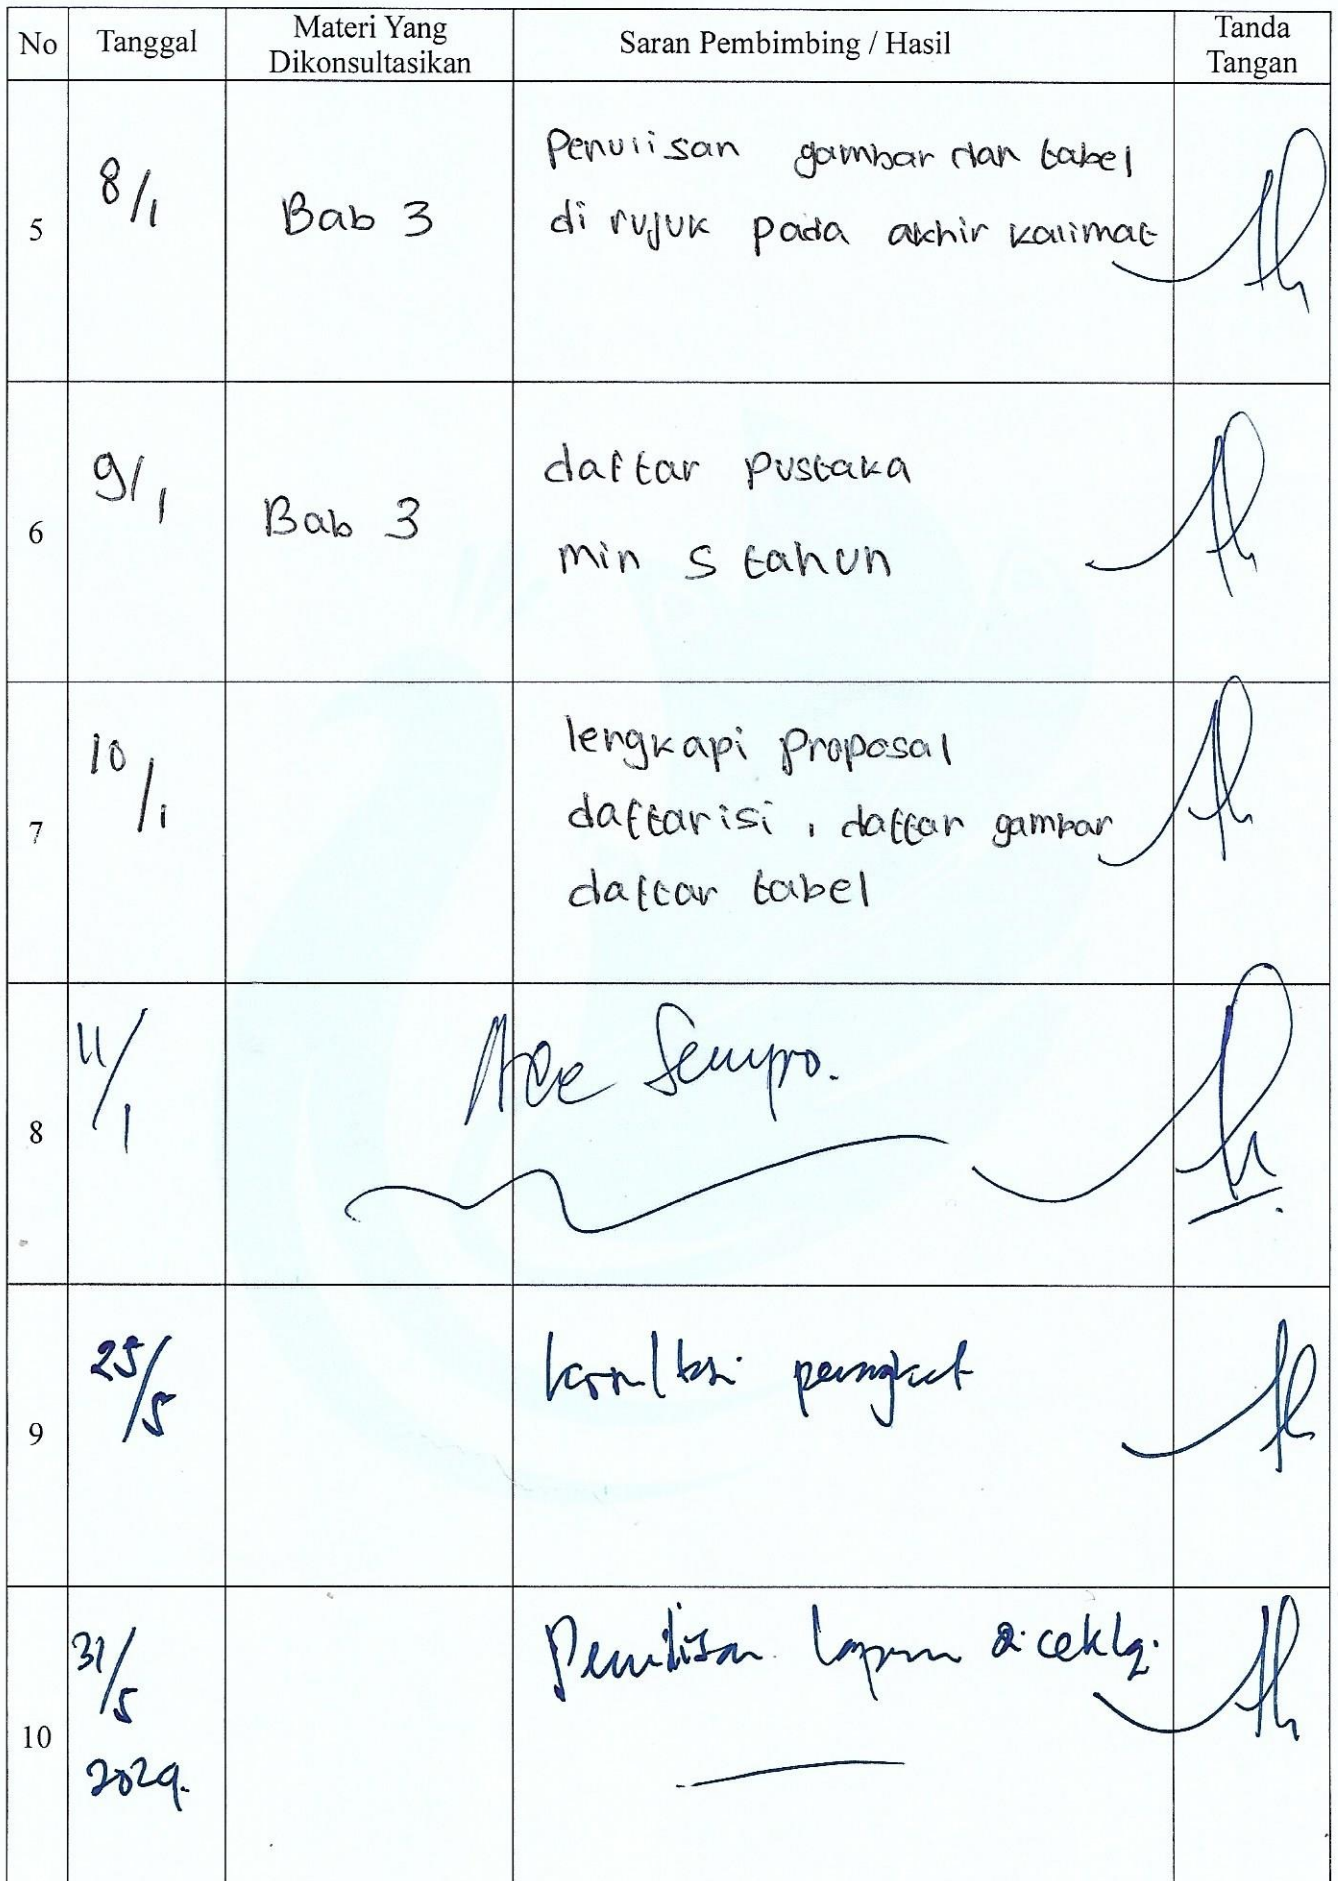 No Tanggal Materi Yang Dikonsultasikan Saran Pembimbing / Hasil Tanda Tangan
5 8/1 Bab 3 Penulisan gambar dan tabel
di rujuk pada akhir kalimat
6 9/1 Bab 3 daftar pustaka
min 5 tahun
7 10/1 lengkapi proposal
daftar isi, daftar gambar
daftar tabel
8 11/1 Acc Sempro.
9 25/5 konsultasi perangkat
10 31/5 Penulisan
2024.